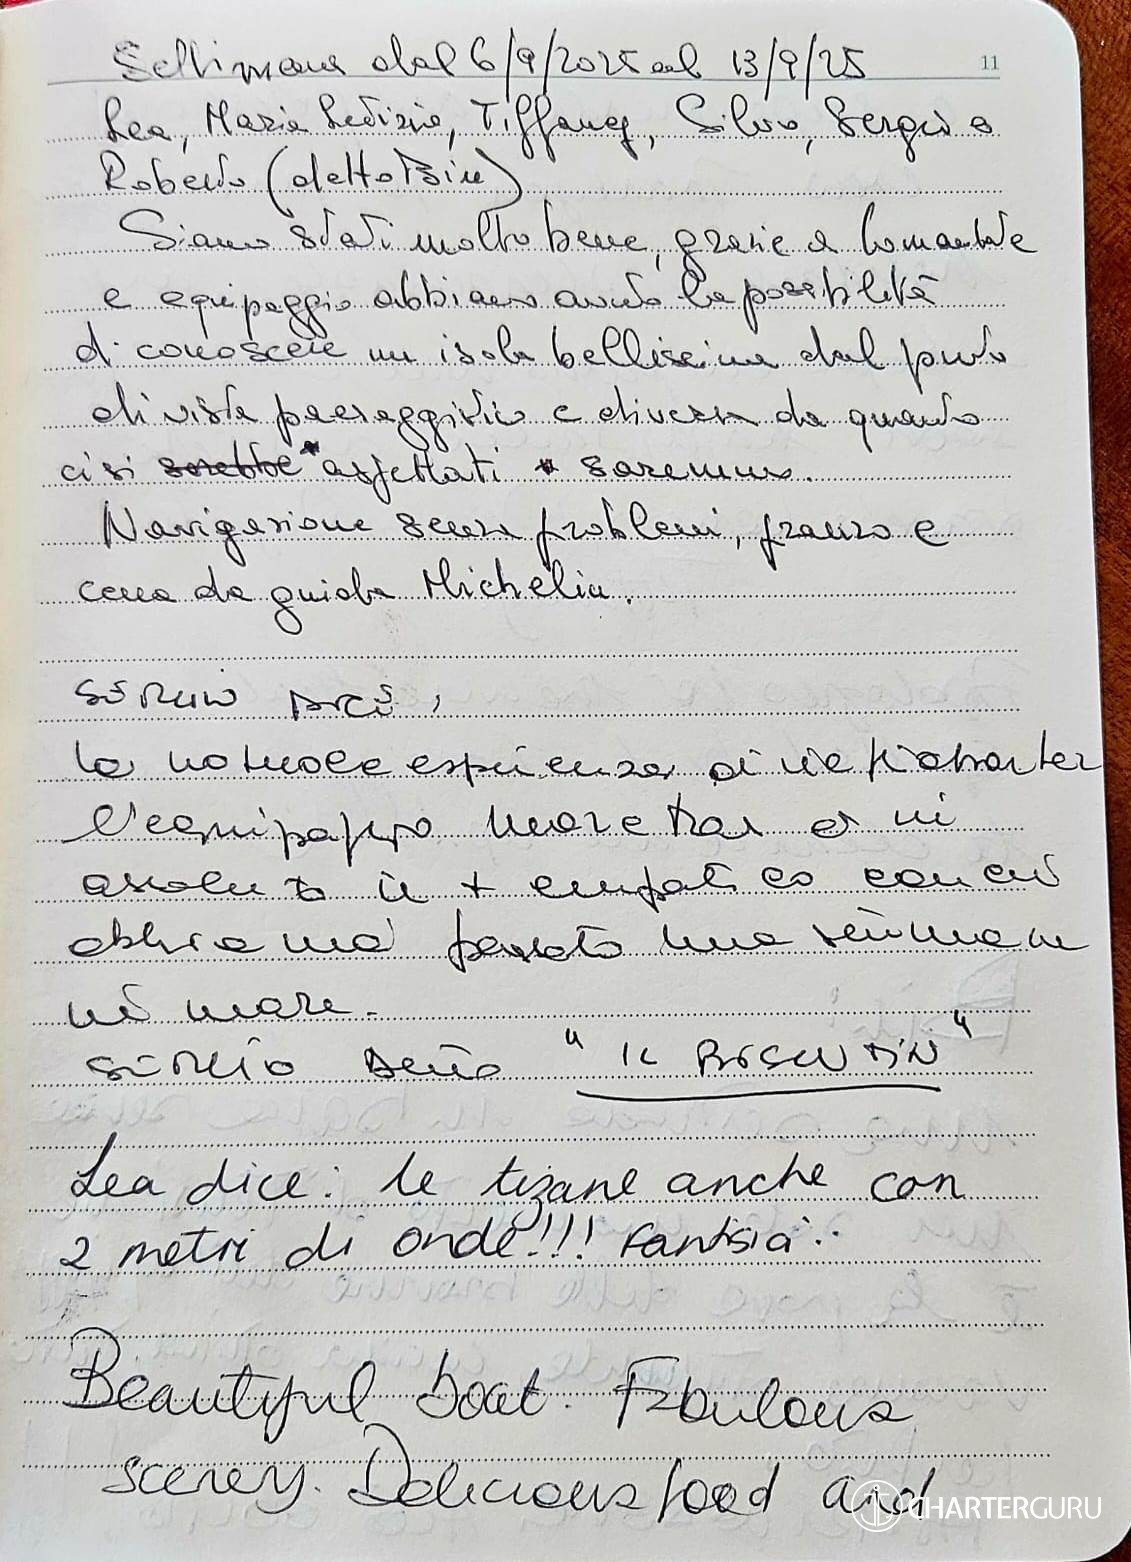 Settimana dal 6/9/2025 al 13/9/25
11
Lea, Maria Letizia, Tiffany, Silvio, Sergio e
Roberto (detto
Siamo stati molto bene, grazie a Comandante
e equipaggio abbiamo avuto la possibilità
di conoscere un isola bellissima dal punto
di vista paesaggistico e diversa da quanto
ci si sarebbe * aspettati * saremmo.
Navigazione senza problemi, pranzo e
cena da guida Michelin.
la notevole esperienza di charter
l'equipaggio
assoluto il + empatico con cui
abbiamo passato una settimana
mare.
detto "IL
Lea dice: le tizane anche con
2 metri di onde!!! Fantisia..
Beautiful boat. Fabulous
scenery. Delicious food and
CHARTERGURU